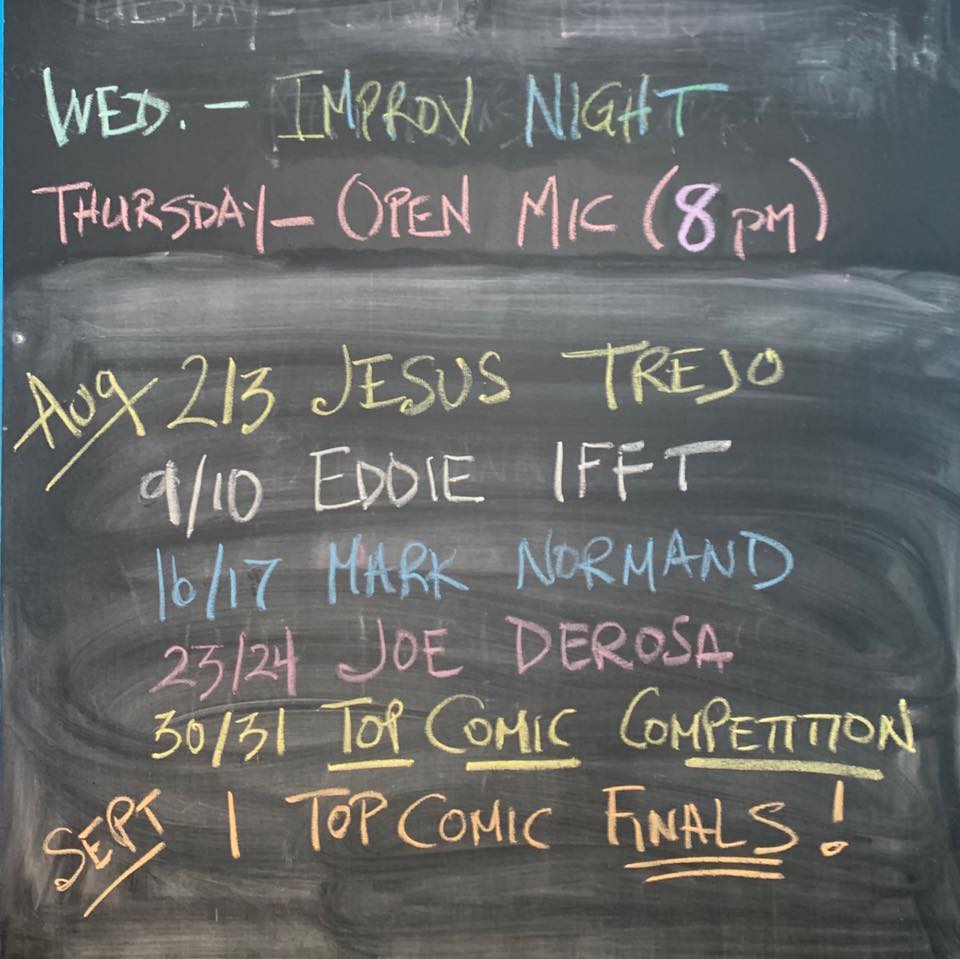 TUESDAY-
WED. - IMPROV NIGHT
THURSDAY- OPEN MIC (8PM)
AUG 2/3 JESUS TREJO
9/10 EDDIE IFFT
16/17 MARK NORMAND
23/24 JOE DEROSA
30/31 TOP COMIC COMPETITION
SEPT 1 TOP COMIC FINALS!